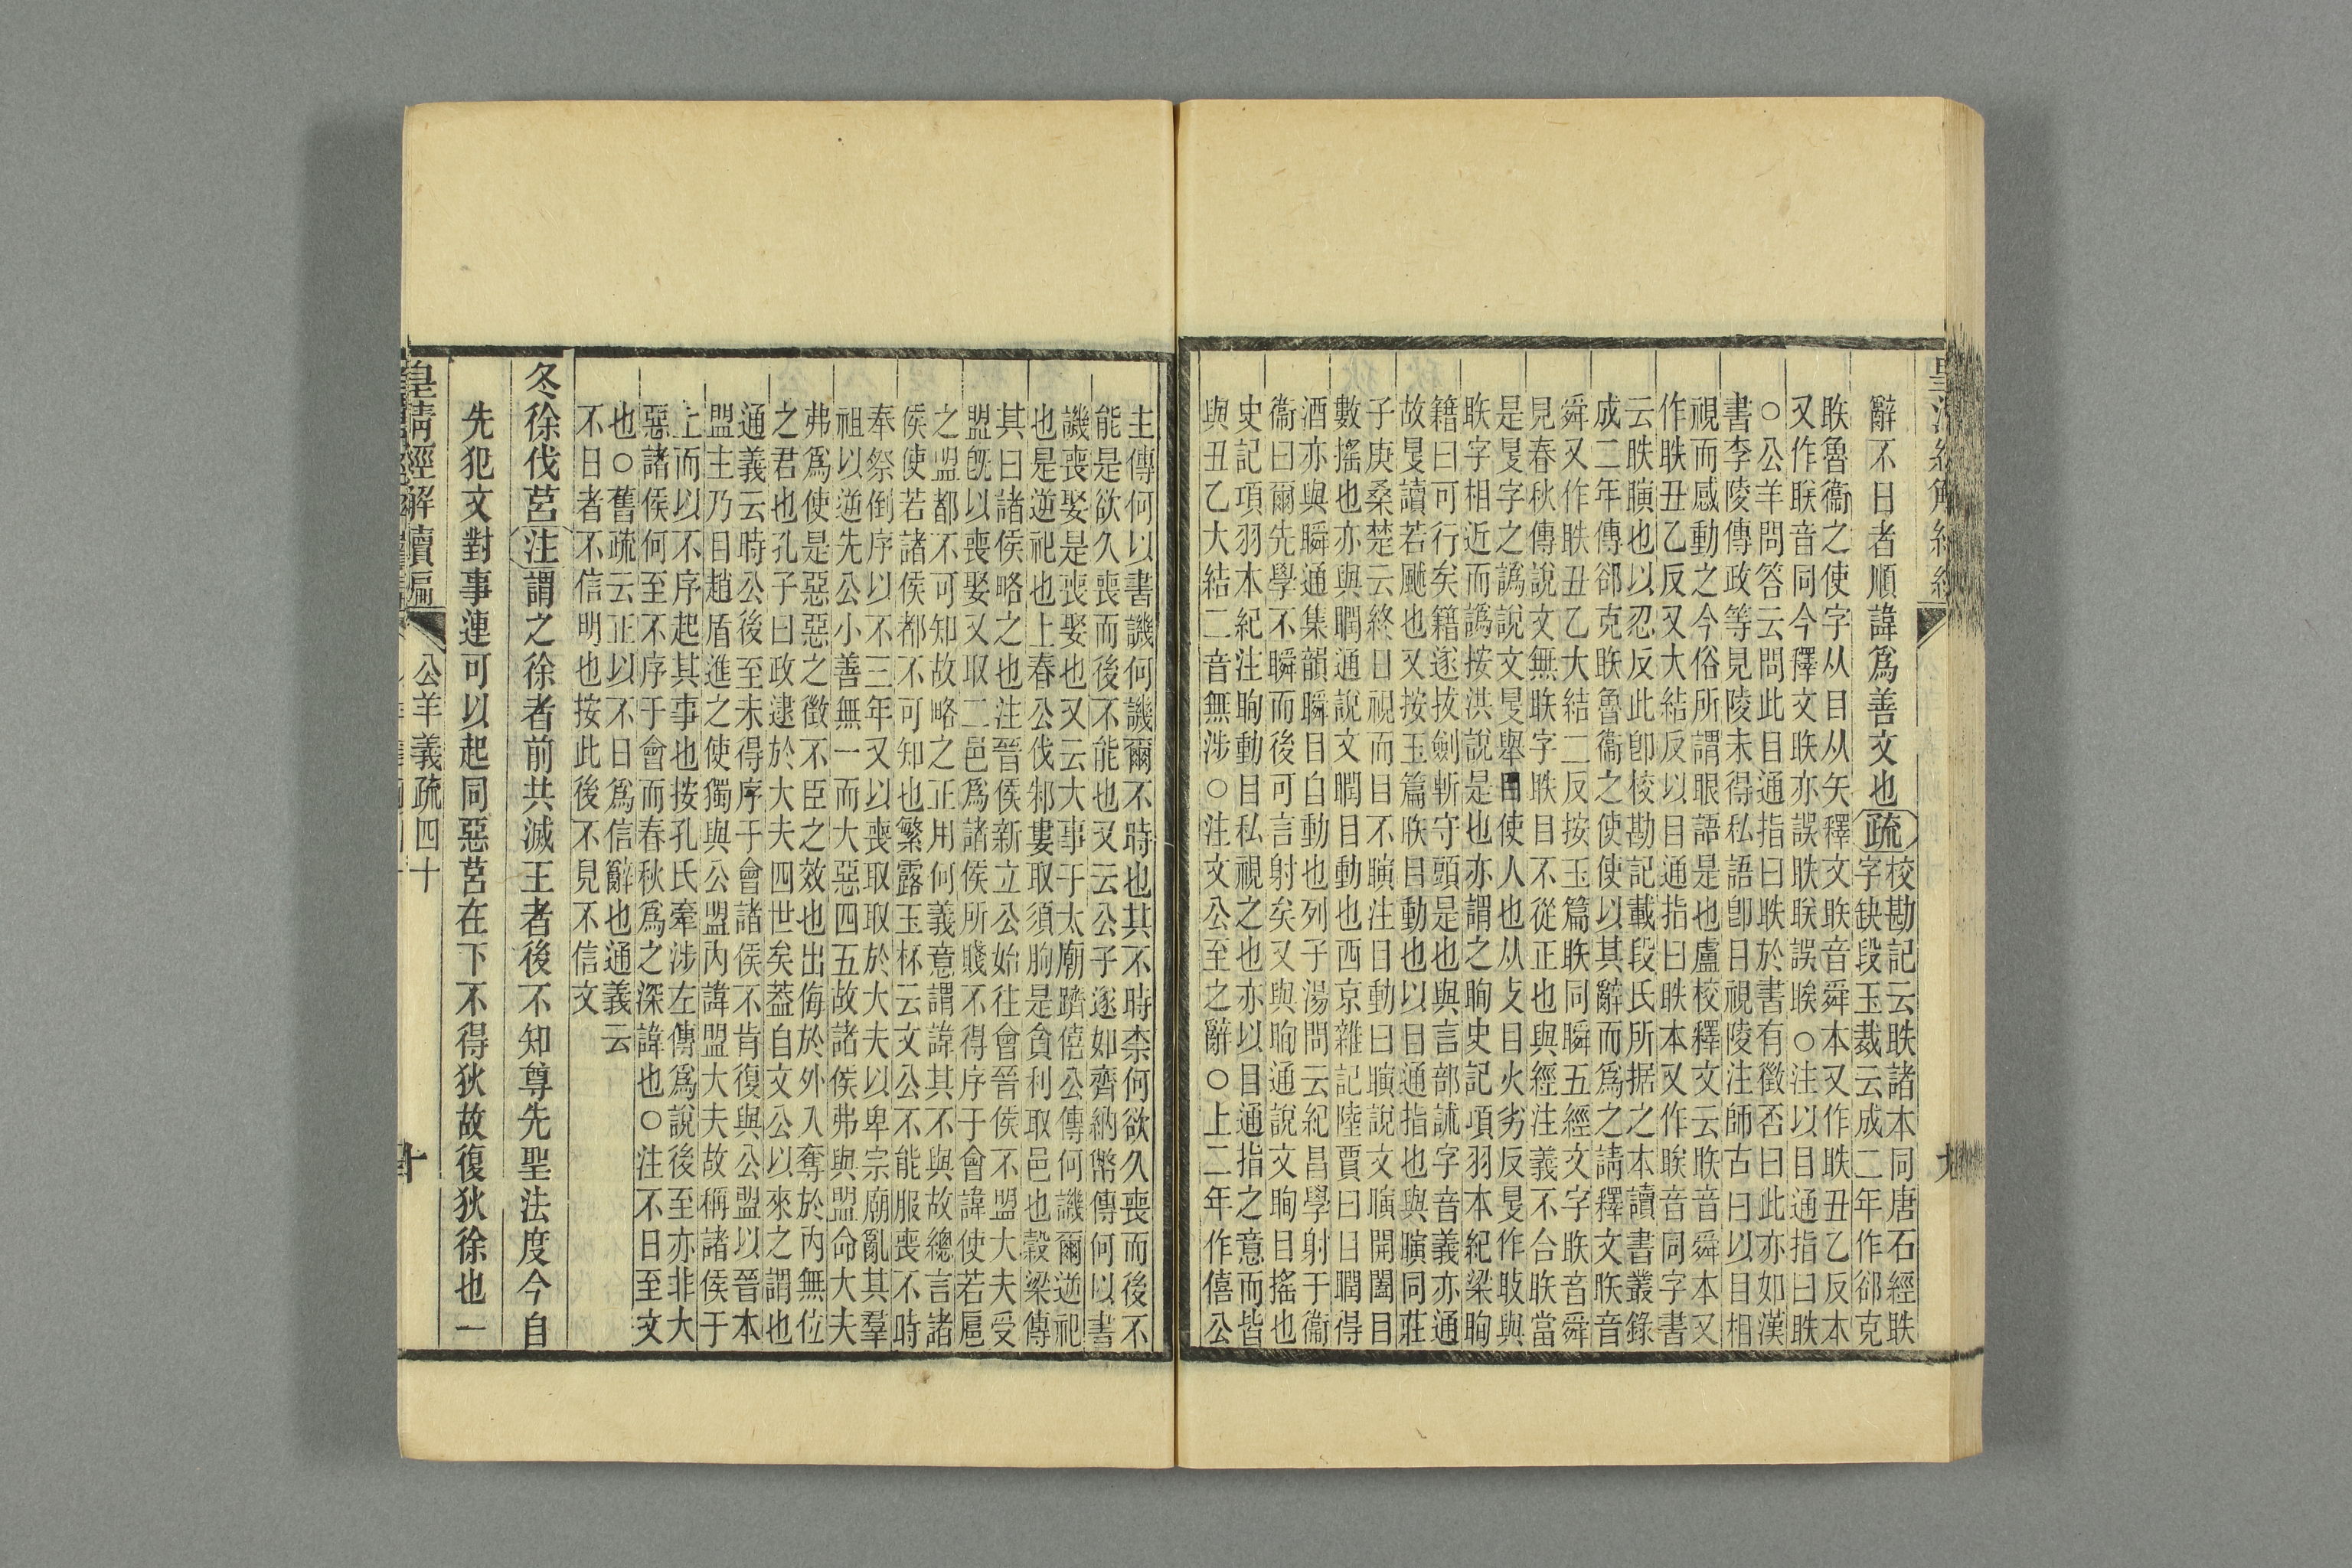 辭不日者順諱爲善文也疏
校勘記云昳諸本同唐石經昳
字缺段玉裁云成二年作郤克
昳魯衞之使字从目从矢釋文昳音舜本又作眣丑乙反本
又作䀢音同今釋文昳亦誤眣䀢誤䀢○注以目通指曰昳
○公羊問答云問此目通指曰昳於書有徵否曰此亦如漢
書李陵傳政等見陵未得私語卽目視陵注師古曰以目相
視而感動之今俗所謂眼語是也盧校釋文云昳音舜本又
作眣丑乙反又大結反以目通指曰眣本又作䀢音同字書
云眣瞚也以忍反此卽校勘記載段氏所据之本讀書叢錄
成二年傳郤克昳魯衞之使使以其辭而爲之請釋文昳音
舜又作眣丑乙大結二反按玉篇昳同瞬五經文字昳音舜
見春秋傳說文無昳字眣目不從正也與經注義不合昳當
是旻字之譌說文旻舉目使人也从攴目火劣反旻作䀏與
昳字相近而譌按洪說是也亦謂之眴史記項羽本紀梁眴
籍曰可行矣籍遂拔劍斬守頭是也與言部訹字音義亦通
故旻讀若颰也又按玉篇昳目動也以目通指也與瞚同莊
子庚桑楚云終日視而目不瞚注目動曰瞚說文瞚開闔目
數搖也亦與瞤通說文瞤目動也西京雜記陸賈曰目瞤得
酒亦與瞬通集韻瞬目自動也列子湯問云紀昌學射于衞
衞曰爾先學不瞬而後可言射矣又與眴通說文眴目搖也
史記項羽本紀注眴動目私視之也亦以目通指之意而皆
與丑乙大結二音無涉○注文公至之辭○上二年作僖公
主傳何以書譏何譏爾不時也其不時柰何欲久喪而後不
能是欲久喪而後不能也又云公子遂如齊納幣傳何以書
譏喪娶是喪娶也又云大事于太廟躋僖公傳何譏爾逆祀
也是逆祀也上春公伐邾婁取須朐是貪利取邑也穀梁傳
其曰諸侯略之也注晉侯新立公始往會晉侯不盟大夫受
盟旣以喪娶又取二邑爲諸侯所賤不得序于會諱使若扈
之盟都不可知故略之正用何義意謂諱其不與故總言諸
侯使若諸侯都不可知也繁露玉杯云文公不能服喪不時
奉祭倒序以不三年又以喪取取於大夫以卑宗廟亂其羣
祖以逆先公小善無一而大惡四五故諸侯弗與盟命大夫
弗爲使是惡惡之徵不臣之效也出侮於外入奪於內無位
之君也孔子曰政逮於大夫四世矣葢自文公以來之謂也
通義云時公後至未得序于會諸侯不肯復與公盟以晉本
盟主乃目趙盾進之使獨與公盟內諱盟大夫故稱諸侯于
上而以不序起其事也按孔氏牽涉左傳爲說後至亦非大
惡諸侯何至不序于會而春秋爲之深諱也○注不日至文
也○舊疏云正以不日爲信辭也通義云
不日者不信明也按此後不見不信文
冬徐伐莒注謂之徐者前共滅王者後不知尊先聖法度今自
先犯文對事連可以起同惡莒在下不得狄故復狄徐也一
皇淸經解續編
公羊義疏四十
十